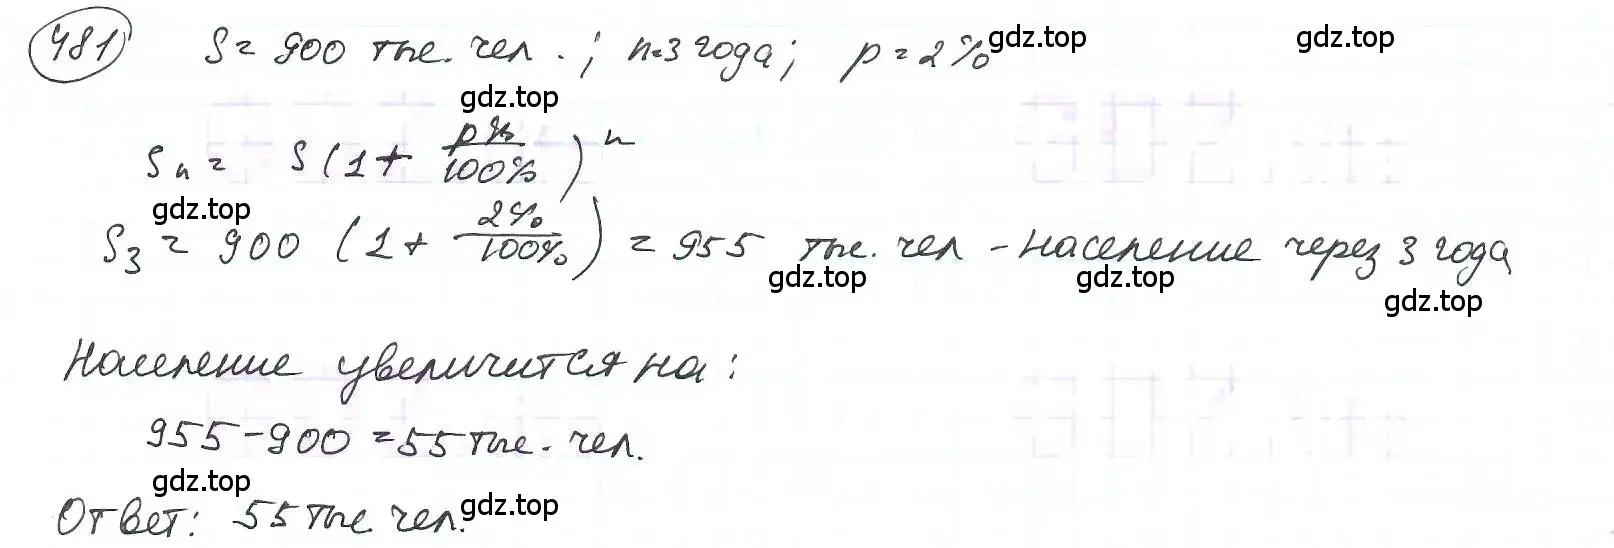 481) S = 900 тыс. чел.; n=3 года; p = 2% gdz.top gdz.top
gdz.top
Sn = S(1 + p%/100%)^n
gdz.top
S3 = 900 (1 + 2%/100%) = 955 тыс. чел - население через 3 года
gdz.top gdz.top
gdz.top
Население увеличится на:
955 - 900 = 55 тыс. чел.
gdz.top
Ответ: 55 тыс чел. gdz.top